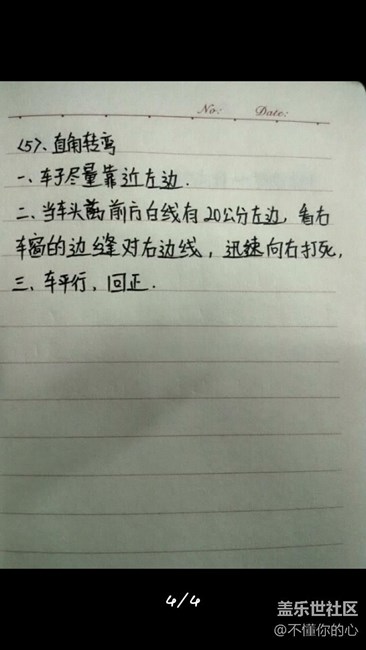 No: Date:
<5>、直角转弯
一、车子尽量靠近左边.
二、当车头离前方白线有20公分左边,看右
车窗的边缝对右边线,迅速向右打死,
三、车平行,回正.
4/4
盖乐世社区
@不懂你的心